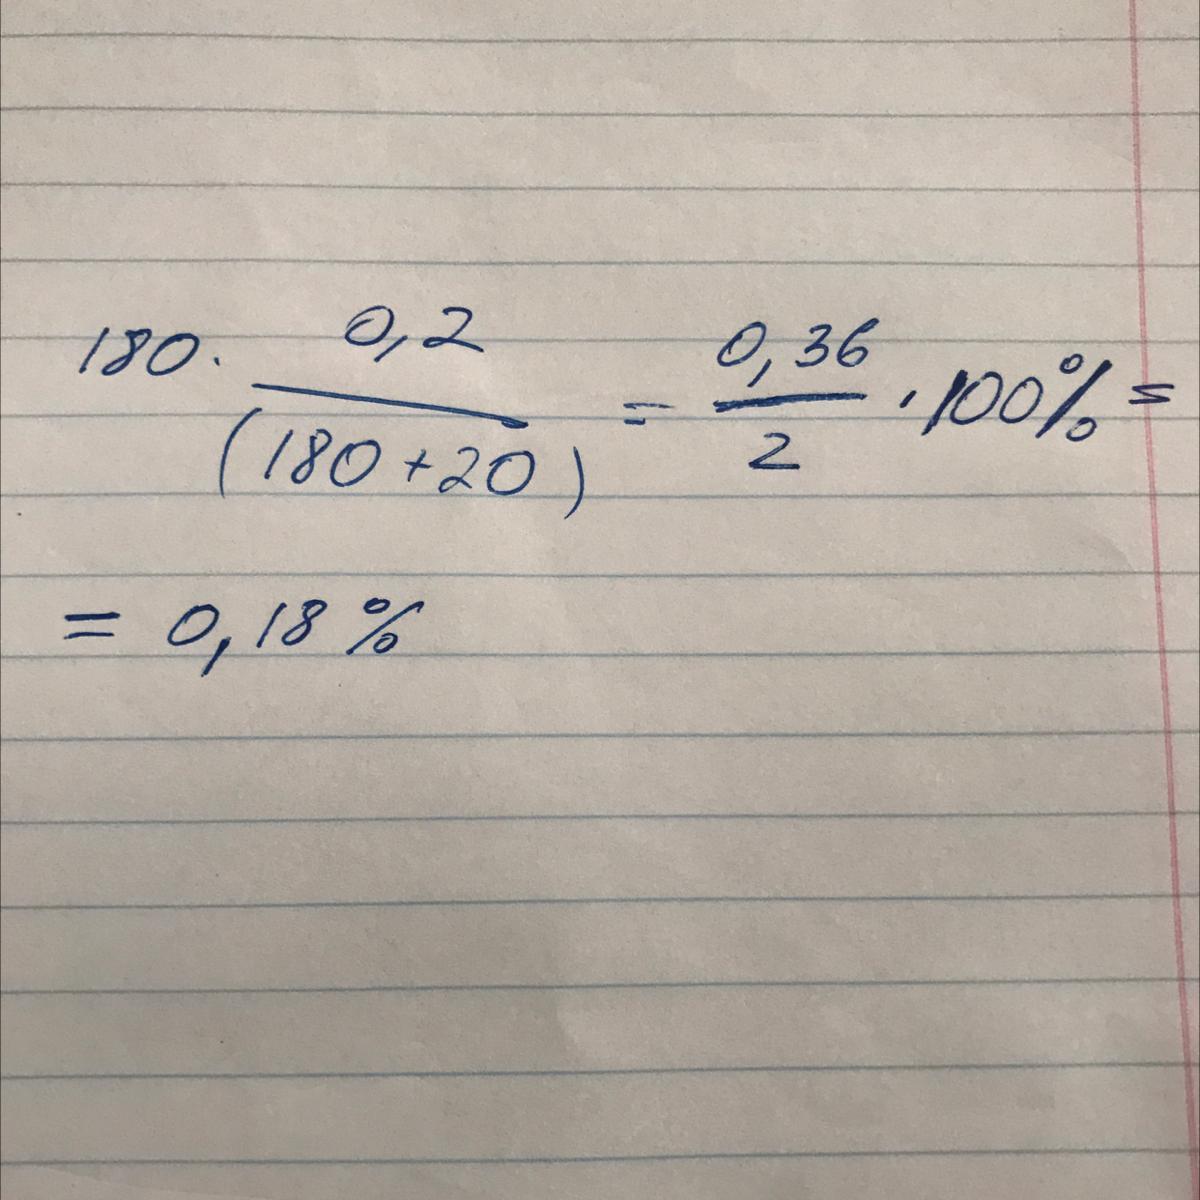 180 · 0,2 / (180 + 20) = 0,36 / 2 · 100% =
= 0,18 %